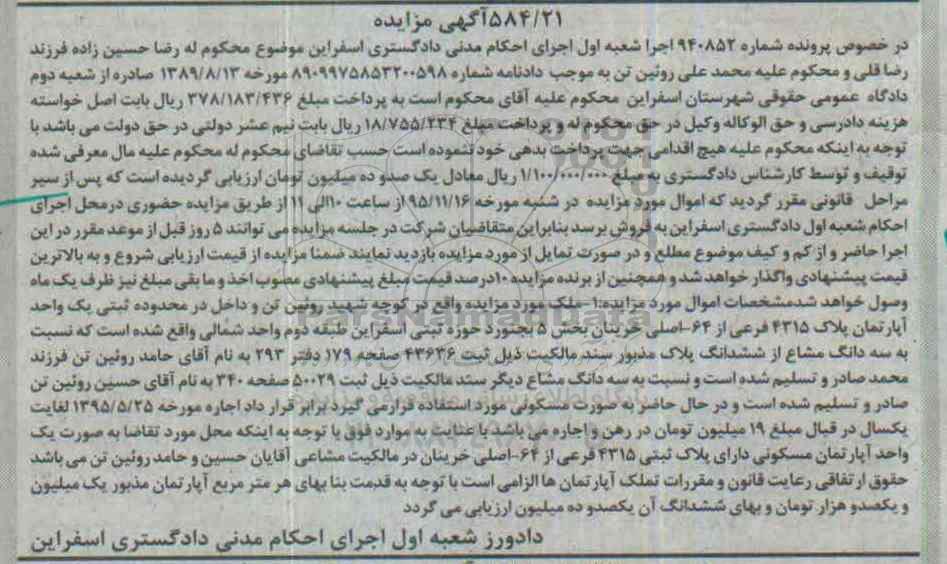 ۵۸۴/۲۱آگهی مزایده
در خصوص پرونده شماره ۹۴۰۸۵۲ اجرا شعبه اول اجرای احکام مدنی دادگستری اسفراین موضوع محکوم له رضا حسین زاده فرزند
رضا قلی و محکوم علیه محمد علی روئین تن به موجب دادنامه شماره ۸۹۰۹۹۷۵۸۵۳۲۰۰۵۹۸ مورخه ۱۳۸۹/۸/۱۳ صادره از شعبه دوم
دادگاه عمومی حقوقی شهرستان اسفراین محکوم علیه آقای محکوم است به پرداخت مبلغ ۳۷۸/۱۸۳/۴۳۶ ریال بابت اصل خواسته
هزینه دادرسی و حق الوکاله وکیل در حق محکوم له و پرداخت مبلغ ۱۸/۷۵۵/۲۳۴ ریال بابت نیم عشر دولتی در حق دولت می باشد با
توجه به اینکه محکوم علیه هیچ اقدامی جهت پرداخت بدهی خود ننموده است حسب تقاضای محکوم له محکوم علیه مال معرفی شده
توقیف و توسط کارشناس دادگستری به مبلغ ۱/۱۰۰/۰۰۰/۰۰۰ ریال معادل یک صدو ده میلیون تومان ارزیابی گردیده است که پس از سیر
مراحل قانونی مقرر گردید که اموال مورد مزایده در شنبه مورخه ۹۵/۱۱/۱۶ از ساعت ۱۰الی ۱۱ از طریق مزایده حضوری درمحل اجرای
احکام شعبه اول دادگستری اسفراین به فروش برسد بنابراین متقاضیان شرکت در جلسه مزایده می توانند ۵ روز قبل از موعد مقرر در این
اجرا حاضر و از کم و کیف موضوع مطلع و در صورت تمایل از مورد مزایده بازدید نمایند ضمنا مزایده از قیمت ارزیابی شروع و به بالاترین
قیمت پیشنهادی واگذار خواهد شد و همچنین از برنده مزایده ۱۰در صد قیمت مبلغ پیشنهادی مصوب اخذ و ما بقی مبلغ نیز ظرف یک ماه
وصول خواهد شدمشخصات اموال مورد مزایده:۱-ملک مورد مزایده واقع در کوچه شهید روئین تن و داخل در محدوده ثبتی یک واحد
آپارتمان پلاک ۴۳۱۵ فرعی از ۶۴-اصلی خرینان بخش ۵ بجنورد حوزه ثبتی اسفراین طبقه دوم واحد شمالی واقع شده است که نسبت
به سه دانگ مشاع از ششدانگ پلاک مذبور سند مالکیت ذیل ثبت ۴۳۶۳۶ صفحه ۱۷۹ دفتر ۲۹۳ به نام آقای حامد روئین تن فرزند
محمد صادر و تسلیم شده است و نسبت به سه دانگ مشاع دیگر سند مالکیت ذیل ثبت ۵۰۰۲۹ صفحه ۳۴۰ به نام آقای حسین روئین تن
صادر و تسلیم شده است و در حال حاضر به صورت مسکونی مورد استفاده قرارمی گیرد برابر قرار داد اجاره مورخه ۱۳۹۵/۵/۲۵ لغایت
یکسال در قبال مبلغ ۱۹ میلیون تومان در رهن و اجاره می باشد با عنایت به موارد فوق با توجه به اینکه محل مورد تقاضا به صورت یک
واحد آپارتمان مسکونی دارای پلاک ثبتی ۴۳۱۵ فرعی از ۶۴-اصلی خرینان در مالکیت مشاعی آقایان حسین و حامد روئین تن می باشد
حقوق ارتفاقی رعایت قانون و مقررات تملک آپارتمان ها الزامی است با توجه به قدمت بنا بهای هر متر مربع آپارتمان مذبور یک میلیون
و یکصدو هزار تومان و بهای ششدانگ آن یکصدو ده میلیون ارزیابی می گردد
دادورز شعبه اول اجرای احکام مدنی دادگستری اسفراین